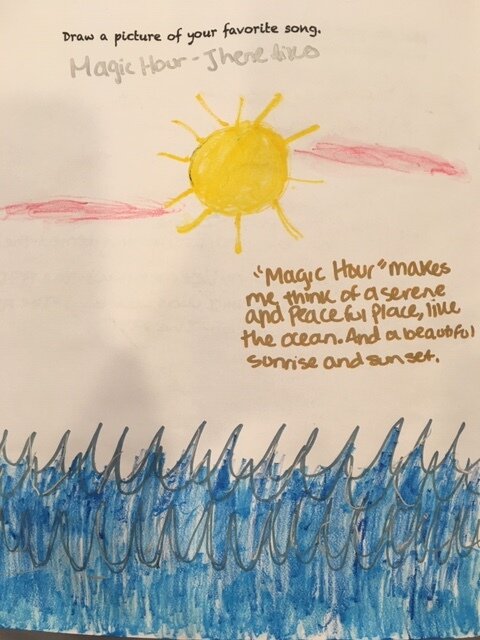 Draw a picture of your favorite song.
Magic Hour - Jhene Aiko
"Magic Hour" makes
me think of a serene
and Peaceful Place, like
the ocean. And a beautiful
sunrise and sunset.